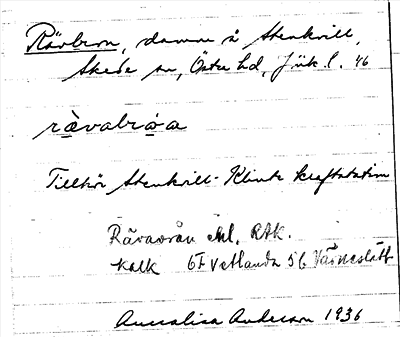 Rävbron, damm å Stenkvill,
Skede sn, Östra hd, Jönk. l. 46
rävabroa
Tillhör Stenkvill-Klinte kraftstation
Rävaorån enl. RAK.
kalk 6F Vetlanda 5 6
Annalisa Anderson 1936